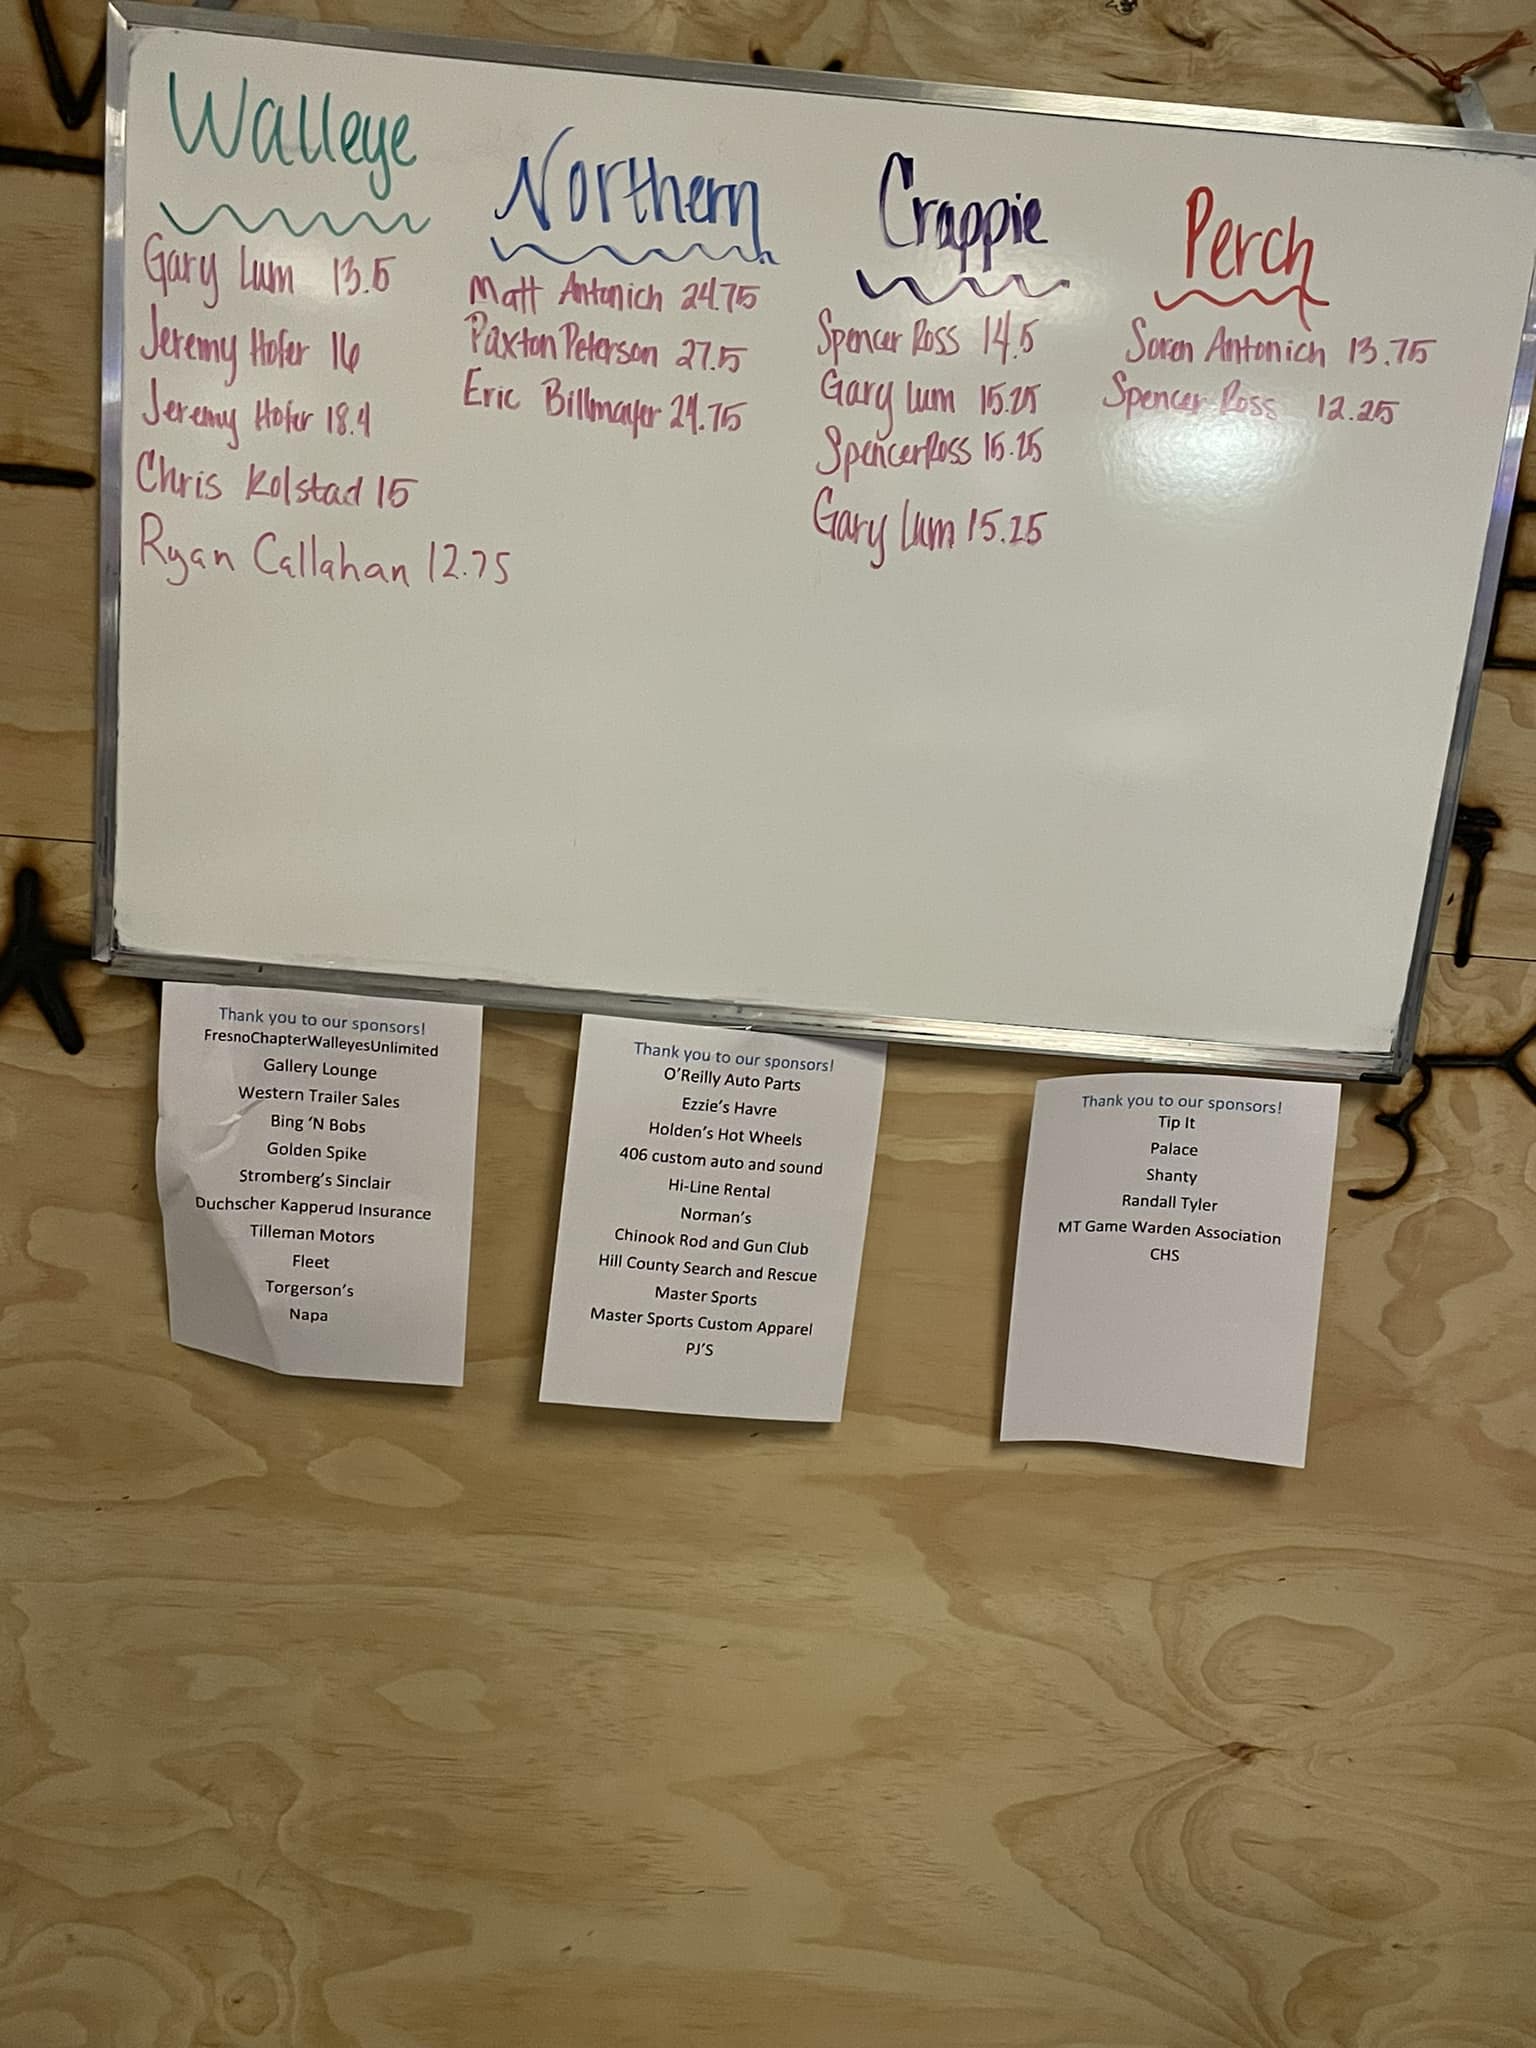 Walleye
Gary Lum 13.5
Jeremy Hofer 16
Jeremy Hofer 18.4
Chris Kolstad 15
Ryan Callahan 12.75
Northern
Matt Antonich 24.75
Paxton Peterson 27.5
Eric Billmayer 24.75
Crappie
Spencer Ross 14.5
Gary Lum 15.25
Spencer Ross 15.25
Gary Lum 15.25
Perch
Soren Antonich 13.75
Spencer Ross 12.25
Thank you to our sponsors!
FresnoChapterWalleyesUnlimited
Gallery Lounge
Western Trailer Sales
Bing 'N Bobs
Golden Spike
Stromberg's Sinclair
Duchscher Kapperud Insurance
Tilleman Motors
Fleet
Torgerson's
Napa
Thank you to our sponsors!
O'Reilly Auto Parts
Ezzie's Havre
Holden's Hot Wheels
406 custom auto and sound
Hi-Line Rental
Norman's
Chinook Rod and Gun Club
Hill County Search and Rescue
Master Sports
Master Sports Custom Apparel
PJ'S
Thank you to our sponsors!
Tip It
Palace
Shanty
Randall Tyler
MT Game Warden Association
CHS